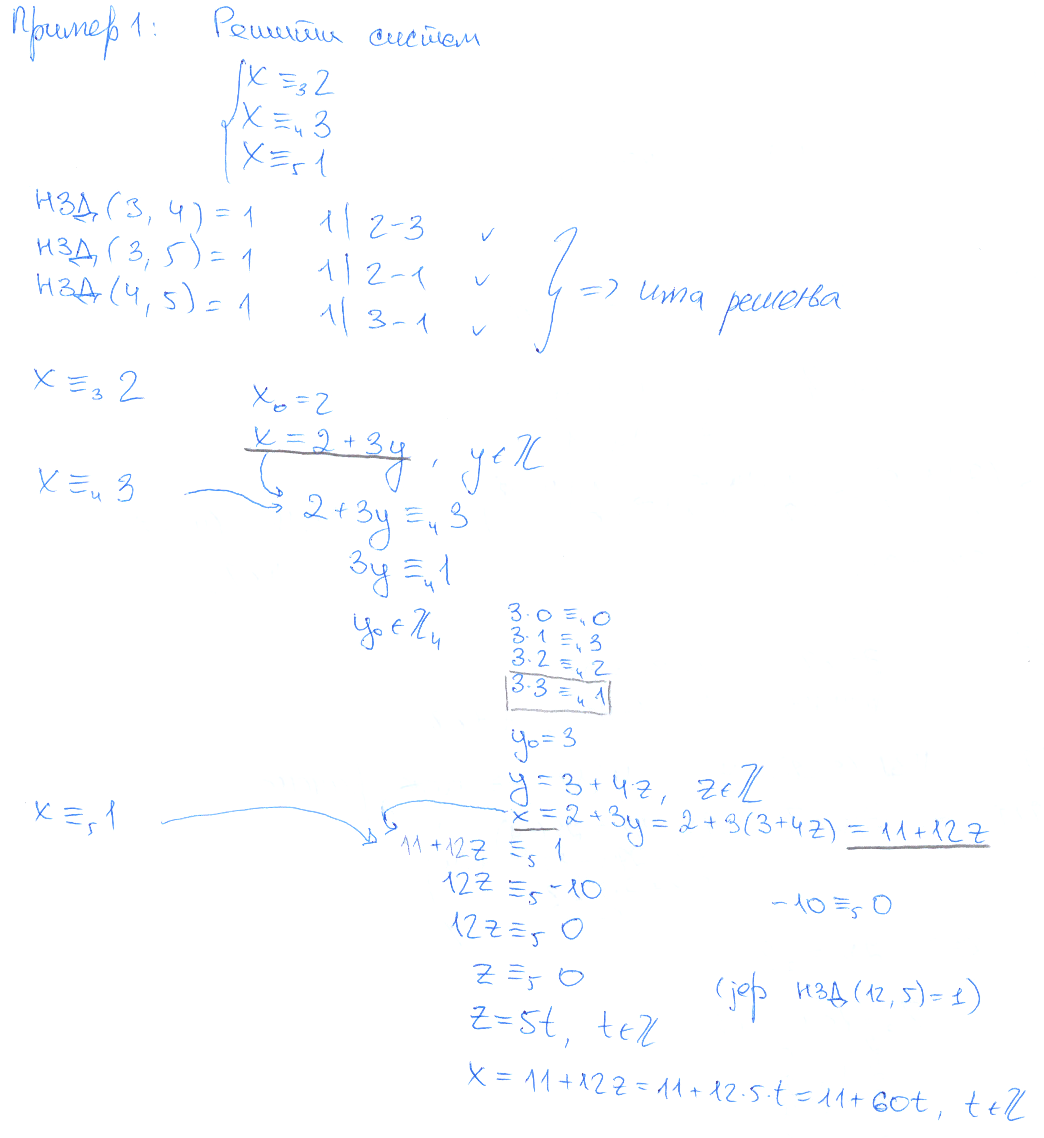 Пример 1: Решити систем
x ≡₃ 2
x ≡₄ 3
x ≡₅ 1
НЗД(3, 4) = 1 1 | 2-3 ✓
НЗД(3, 5) = 1 1 | 2-1 ✓
НЗД(4, 5) = 1 1 | 3-1 ✓
} => има решења
x ≡₃ 2
x₀ = 2
x = 2 + 3y, y ∈ ℤ
x ≡₄ 3
2 + 3y ≡₄ 3
3y ≡₄ 1
y₀ ∈ ℤ₄
3·0 ≡₄ 0
3·1 ≡₄ 3
3·2 ≡₄ 2
3·3 ≡₄ 1
y₀ = 3
y = 3 + 4z, z ∈ ℤ
x = 2 + 3y = 2 + 3(3 + 4z) = 11 + 12z
x ≡₅ 1
11 + 12z ≡₅ 1
12z ≡₅ -10 -10 ≡₅ 0
12z ≡₅ 0
z ≡₅ 0 (јер НЗД(12, 5) = 1)
z = 5t, t ∈ ℤ
x = 11 + 12z = 11 + 12·5·t = 11 + 60t, t ∈ ℤ